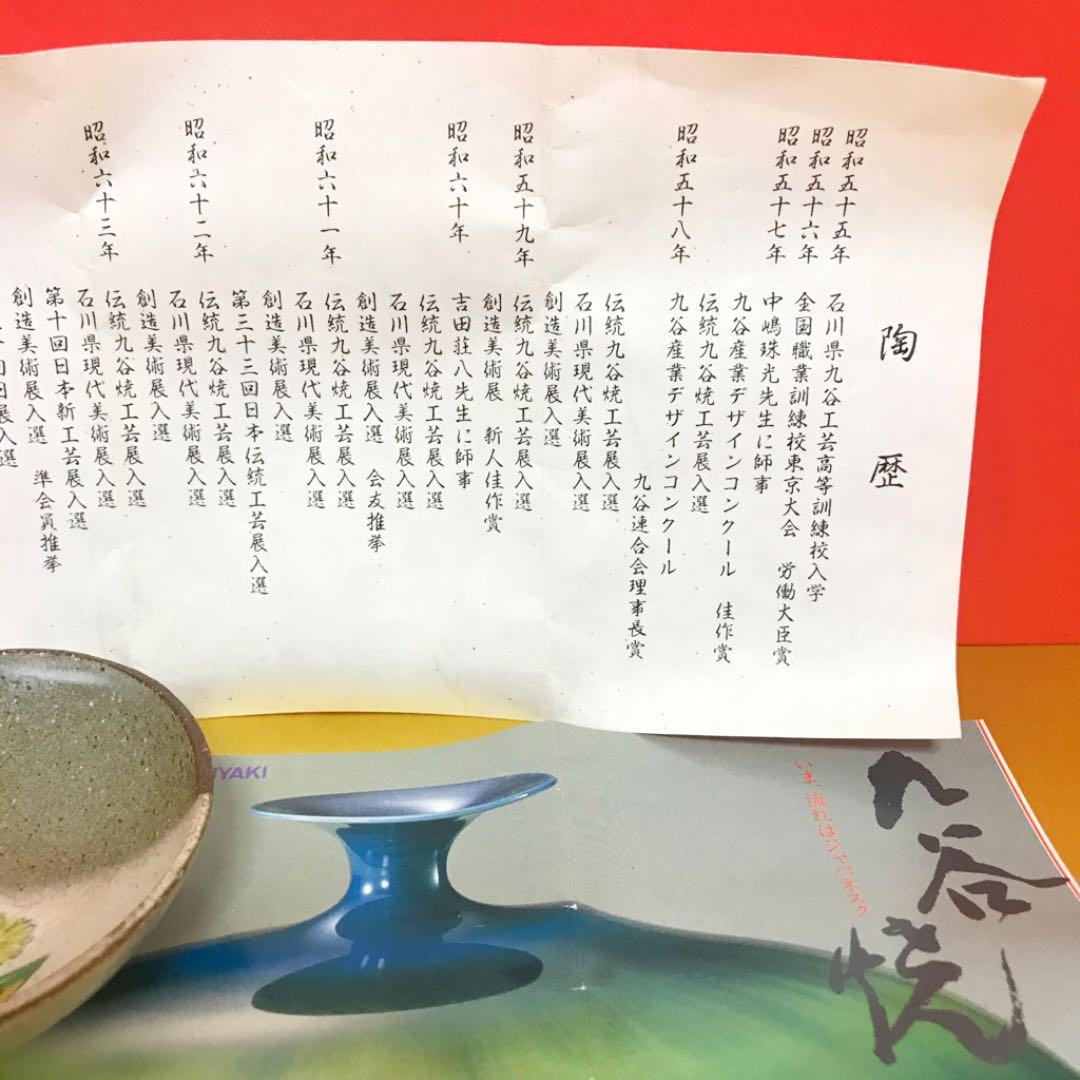 陶歴
昭和五十五年 石川県九谷工芸高等訓練校入学
昭和五十六年 全国職業訓練校東京大会 労働大臣賞
昭和五十七年 中嶋珠光先生に師事
九谷産業デザインコンクール 佳作賞
伝統九谷焼工芸展入選
昭和五十八年 九谷産業デザインコンクール
九谷連合会理事長賞
伝統九谷焼工芸展入選
石川県現代美術展入選
創造美術展入選
昭和五十九年 伝統九谷焼工芸展入選
創造美術展 新人佳作賞
昭和六十年 吉田荘八先生に師事
伝統九谷焼工芸展入選
石川県現代美術展入選
創造美術展入選 会友推挙
昭和六十一年 伝統九谷焼工芸展入選
石川県現代美術展入選
創造美術展入選
第三十三回日本伝統工芸展入選
昭和六十二年 伝統九谷焼工芸展入選
石川県現代美術展入選
創造美術展入選
昭和六十三年 伝統九谷焼工芸展入選
石川県現代美術展入選
第十回日本新工芸展入選
創造美術展入選 準会員推挙
九谷焼
いま、流れはジャパネスク
YAKI